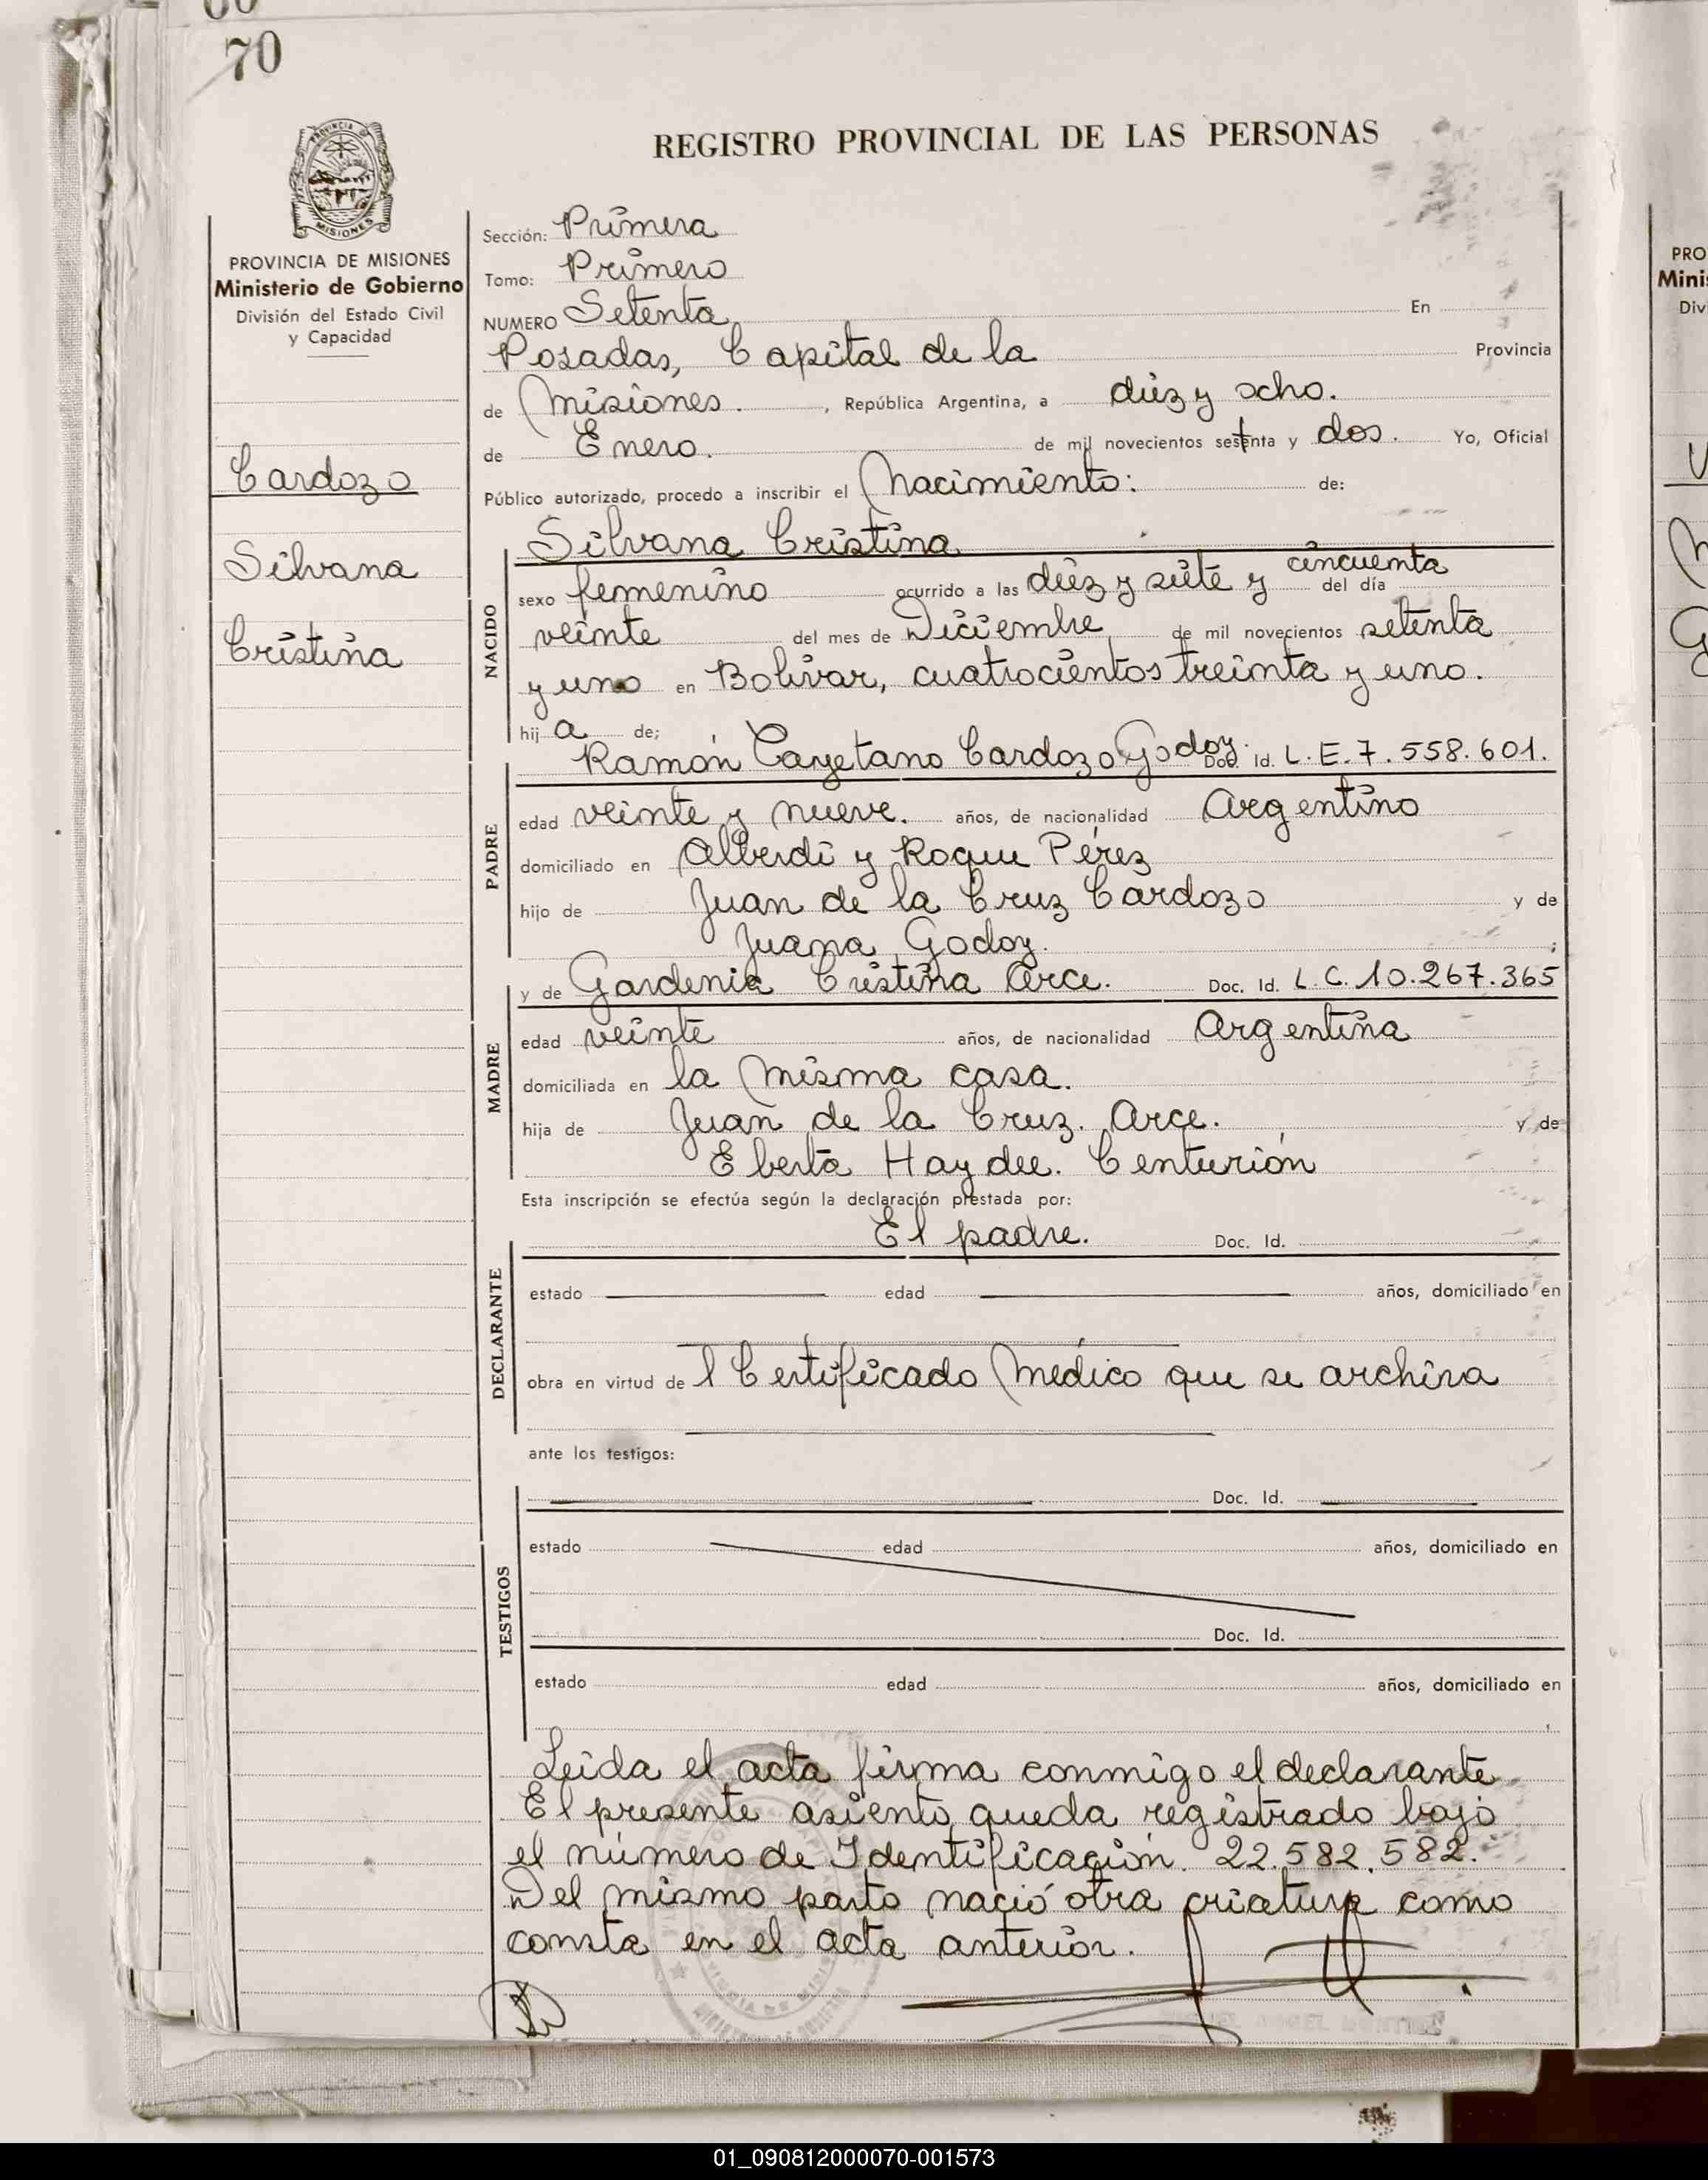 70
REGISTRO PROVINCIAL DE LAS PERSONAS
PROVINCIA
MISIONES
PROVINCIA DE MISIONES
Ministerio de Gobierno
División del Estado Civil
y Capacidad
Cardozo
Silvana
Cristina
Sección: Primera
Tomo: Primero
NUMERO Setenta En
Posadas, Capital de la Provincia
de Misiones. , República Argentina, a diez y ocho.
de Enero. de mil novecientos setenta y dos. Yo, Oficial
Público autorizado, procedo a inscribir el Nacimiento: de:
Silvana Cristina
NACIDO
sexo femenino ocurrido a las diez y siete y cincuenta del día
veinte del mes de Diciembre de mil novecientos setenta
y uno en Bolivar, cuatrocientos treinta y uno.
hij a de;
Ramón Cayetano Cardozo Godoy. Doc. Id. L.E. 7.558.601.
PADRE
edad veinte y nueve. años, de nacionalidad Argentino
domiciliado en Alberdi y Roque Pérez
hijo de Juan de la Cruz Cardozo y de
Juana Godoy. ;
y de Gardenia Cristina Arce. Doc. Id. L.C. 10.267.365
MADRE
edad veinte años, de nacionalidad Argentina
domiciliada en la misma casa.
hija de Juan de la Cruz. Arce. y de
Eberta Haydee. Centurión
Esta inscripción se efectúa según la declaración prestada por:
El padre. Doc. Id.
DECLARANTE
estado edad años, domiciliado en
obra en virtud de l Certificado Médico que se archiva
ante los testigos:
Doc. Id.
TESTIGOS
estado edad años, domiciliado en
Doc. Id.
estado edad años, domiciliado en
Leida el acta firma conmigo el declarante
El presente asiento queda registrado bajo
el número de Identificación. 22.582.582.
Del mismo parto nació otra criatura como
consta en el acta anterior.
PRO
Minis
Div
01_090812000070-001573